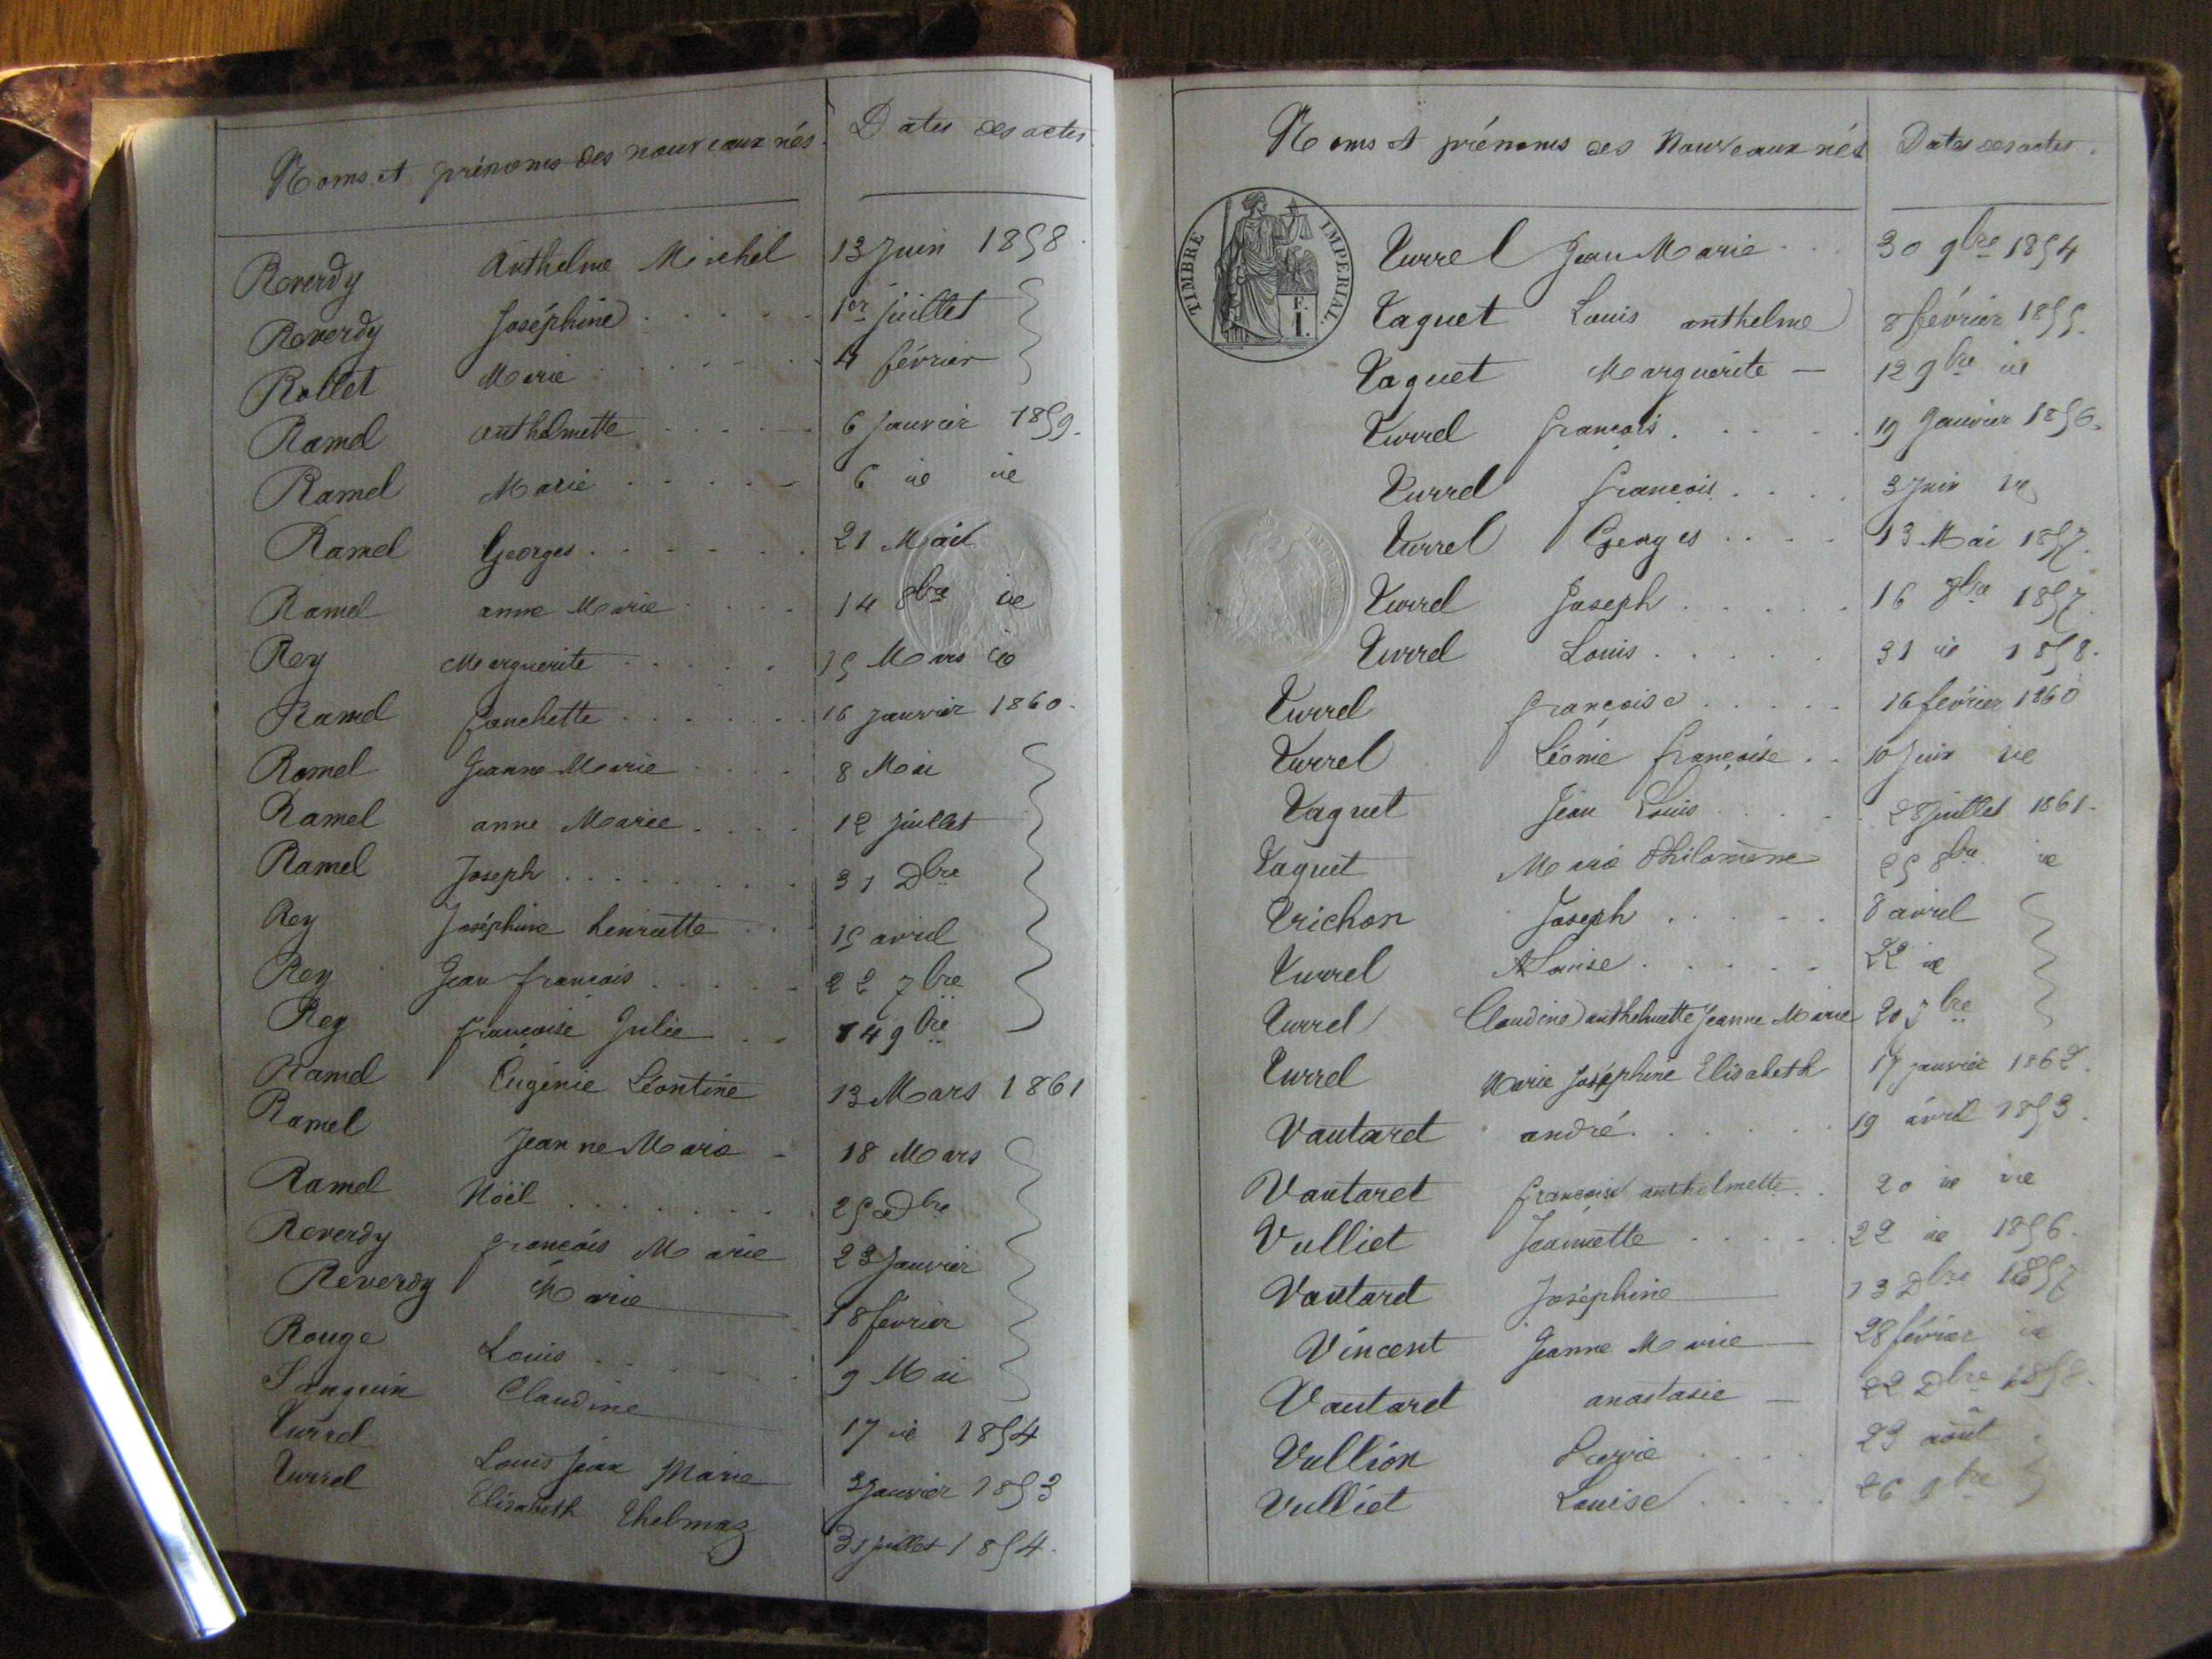 Noms et prénoms des nouveaux nés. Dates des actes.
Reverdy Anthelme Michel 13 Juin 1858.
Reverdy Joséphine 1er juillet
Rollet Marie 4 février
Ramel anthelmette 6 janvier 1859.
Ramel Marie 6 id id
Ramel Georges 21 Mai id
Ramel anne Marie 14 8bre id
Rey Marguerite 15 Mars id
Ramel fanchette 16 janvier 1860.
Ramel Jeanne Marie 8 Mai
Ramel anne Marie 12 juillet
Ramel Joseph 31 Dbre
Rey Joséphine henriette 15 avril
Rey Jean françois 22 7bre
Rey françoise Julie 14 9bre
Ramel Eugénie Léontine 13 Mars 1861
Ramel Jeanne Marie 18 Mars
Ramel Noël 25 Dbre
Reverdy françois Marie 23 Janvier
Reverdy Marie 18 fevrier
Rouge Louis 9 Mai
Sanguin Claudine 17 id 1854
Turrel Louis Jean Marie 3 Janvier 1853
Turrel Elisabeth Thelmaz 31 juillet 1854.
Noms et prénoms des Nouveaux nés Dates des actes.
TIMBRE IMPERIAL.
Turrel Jean Marie 30 9bre 1854
Taguet Louis anthelme 8 février 1855.
Taguet Marguerite 12 9bre id
Turrel françois 19 Janvier 1856.
Turrel françois 3 Juin id
Turrel Georges 13 Mai 1857.
Turrel Joseph 16 8bre 1857.
Turrel Louis 31 id 1858.
Turrel françoise 16 février 1860
Turrel Léonie françoise 10 Juin id
Taguet Jean Louis 28 juillet 1861.
Taguet Marie Philomène 25 8bre id
Trichon Joseph 8 avril
Turrel Louise 22 id
Turrel Claudine anthelmette Jeanne Marie 20 7bre
Turrel Marie Joséphine Elisabeth 17 janvier 1862.
Vautaret andré 19 avril 1853.
Vautaret françoise anthelmette 20 id id
Vulliet Jeannette 22 id 1856.
Vautaret Joséphine 13 Dbre 1857
Vincent Jeanne Marie 28 février id
Vautaret anastasie 22 Dbre 1858.
Vullion 23 août
Vulliet Louise 26 9bre